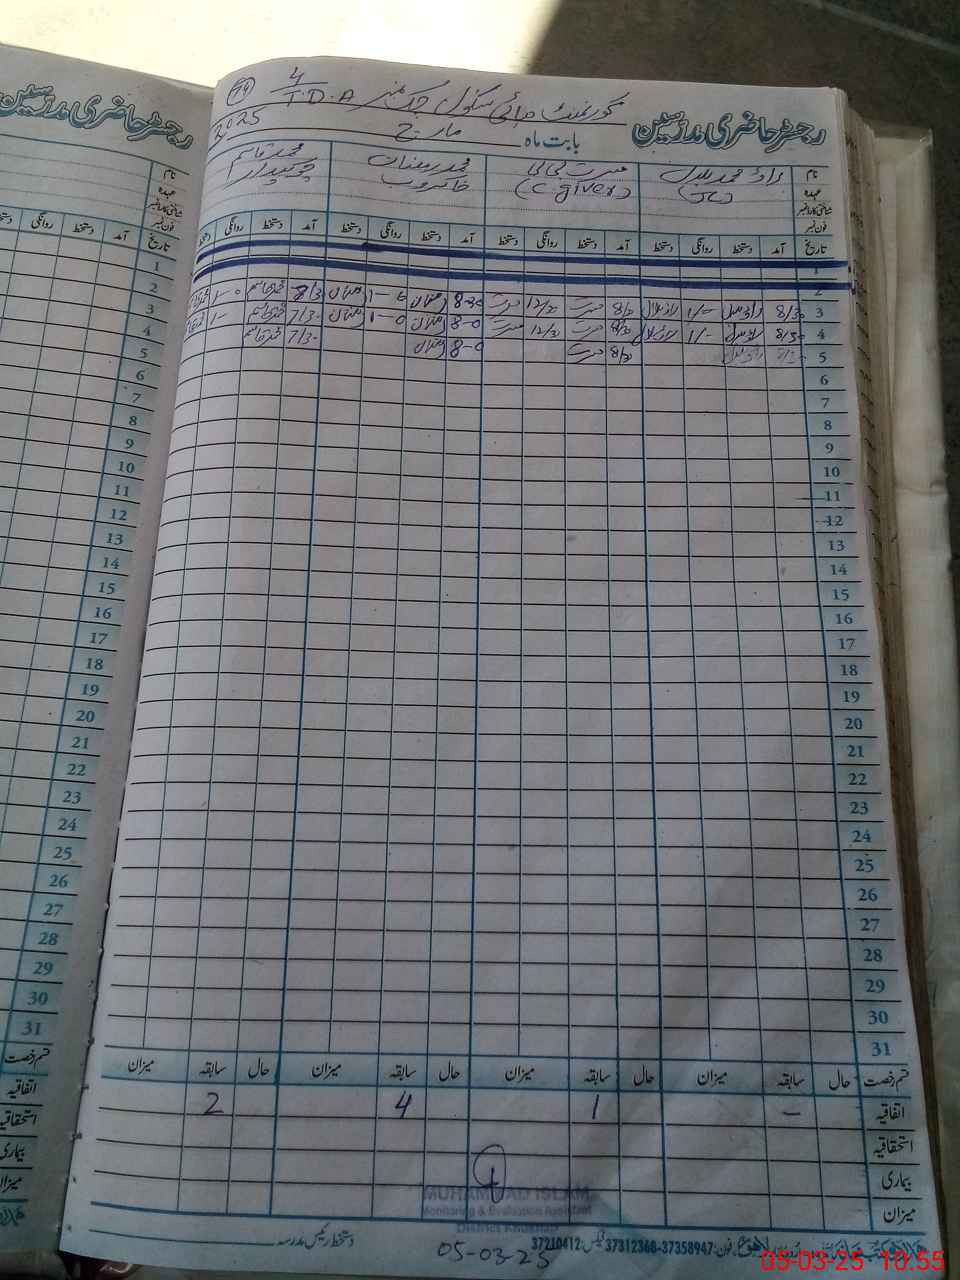 79
4
گورنمنٹ ہائی سکول چک نمبر T.D.A
رجسٹر حاضری مدرسین
بابت ماہ مارچ 2025
نام راؤ محمد بلال مسرت بی بی محمد رمضان محمد قاسم
عہدہ (JC) (C giver) خاکروب چوکیدار
شناختی کارڈ نمبر
فون نمبر
تاریخ آمد دستخط روانگی دستخط آمد دستخط روانگی دستخط آمد دستخط روانگی دستخط آمد دستخط روانگی دستخط
1
2
3 8/30 1/- 8/30 12/30 8-30 1-0 7/30 1-0
4 8/30 1/- 8/30 12/30 8-0 1-0 7/30 1-
5 8/30 8-0 رمضان 7/30 محمد قاسم
6
7
8
9
10
11
12
13
14
15
16
17
18
19
20
21
22
23
24
25
26
27
28
29
30
31
قسم رخصت حال سابقہ میزان حال سابقہ میزان حال سابقہ میزان حال سابقہ میزان
اتفاقیہ - 1 4 2
استحقاقیہ
بیماری
میزان
MUHAMMAD ISLAM
Monitoring & Evaluation Assistant
District Khushab
دستخط رئیس مدرسہ
فون: 37358947-37312368 فیکس: 37210412
05-03-25
05-03-25 10.55
رجسٹر حاضری مدرسین
نام
عہدہ
شناختی کارڈ نمبر
فون نمبر
تاریخ آمد دستخط روانگی دستخط
1
2
3
4
5
6
7
8
9
10
11
12
13
14
15
16
17
18
19
20
21
22
23
24
25
26
27
28
29
30
31
قسم رخصت
اتفاقیہ
استحقاقیہ
بیماری
میزان